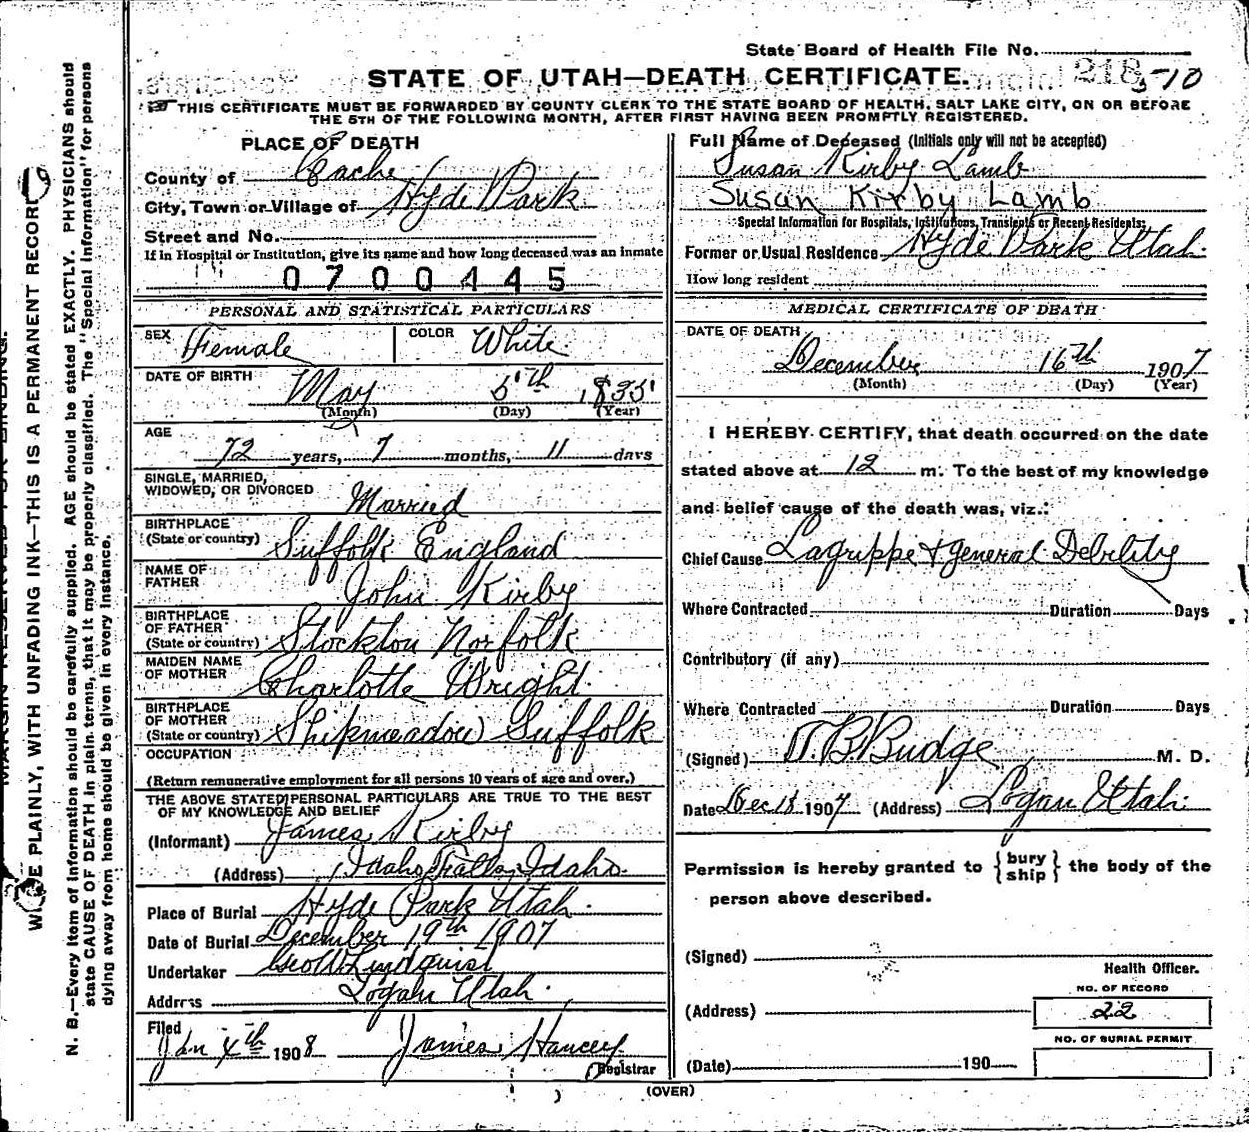 State Board of Health File No.
STATE OF UTAH—DEATH CERTIFICATE.
218 5-10
THIS CERTIFICATE MUST BE FORWARDED BY COUNTY CLERK TO THE STATE BOARD OF HEALTH, SALT LAKE CITY, ON OR BEFORE
THE 5TH OF THE FOLLOWING MONTH, AFTER FIRST HAVING BEEN PROMPTLY REGISTERED.
PLACE OF DEATH
County of Cache
City, Town or Village of Hyde Park
Street and No.
If in Hospital or Institution, give its name and how long deceased was an inmate
0700445
PERSONAL AND STATISTICAL PARTICULARS
SEX Female COLOR White
DATE OF BIRTH
May 5th 1835
(Month) (Day) (Year)
AGE
72 years, 7 months, 11 days
SINGLE, MARRIED,
WIDOWED, OR DIVORCED Married
BIRTHPLACE
(State or country) Suffolk England
NAME OF
FATHER John Kirby
BIRTHPLACE
OF FATHER
(State or country) Stockton Norfolk
MAIDEN NAME
OF MOTHER Charlotte Wright
BIRTHPLACE
OF MOTHER
(State or country) Shipmeadow Suffolk
OCCUPATION
(Return remunerative employment for all persons 10 years of age and over.)
THE ABOVE STATED PERSONAL PARTICULARS ARE TRUE TO THE BEST
OF MY KNOWLEDGE AND BELIEF
(Informant) James Kirby
(Address) Idaho Falls, Idaho.
Place of Burial Hyde Park Utah.
Date of Burial December 19th 1907
Undertaker Geo W Lindquist
Address Logan Utah.
Filed
Jan 4th 1908 James Hancey
Registrar
Full Name of Deceased (Initials only will not be accepted)
Susan Kirby Lamb
Susan Kirby Lamb
Special Information for Hospitals, Institutions, Transients or Recent Residents:
Former or Usual Residence Hyde Park Utah.
How long resident
MEDICAL CERTIFICATE OF DEATH
DATE OF DEATH
December 16th 1907
(Month) (Day) (Year)
I HEREBY CERTIFY, that death occurred on the date
stated above at 12 m. To the best of my knowledge
and belief cause of the death was, viz.:
Chief Cause Lagrippe & general Debility
Where Contracted Duration Days
Contributory (if any)
Where Contracted Duration Days
(Signed) D. B. Budge M. D.
Date Dec 18 1907 (Address) Logan Utah.
Permission is hereby granted to { bury ship } the body of the
person above described.
(Signed)
Health Officer.
NO. OF RECORD
(Address) 22
NO. OF BURIAL PERMIT
(Date) 190
(OVER)
WRITE PLAINLY, WITH UNFADING INK—THIS IS A PERMANENT RECORD
N. B.—Every item of information should be carefully supplied. AGE should be stated EXACTLY. PHYSICIANS should
state CAUSE OF DEATH in plain terms, that it may be properly classified. The "Special Information" for persons
dying away from home should be given in every instance.